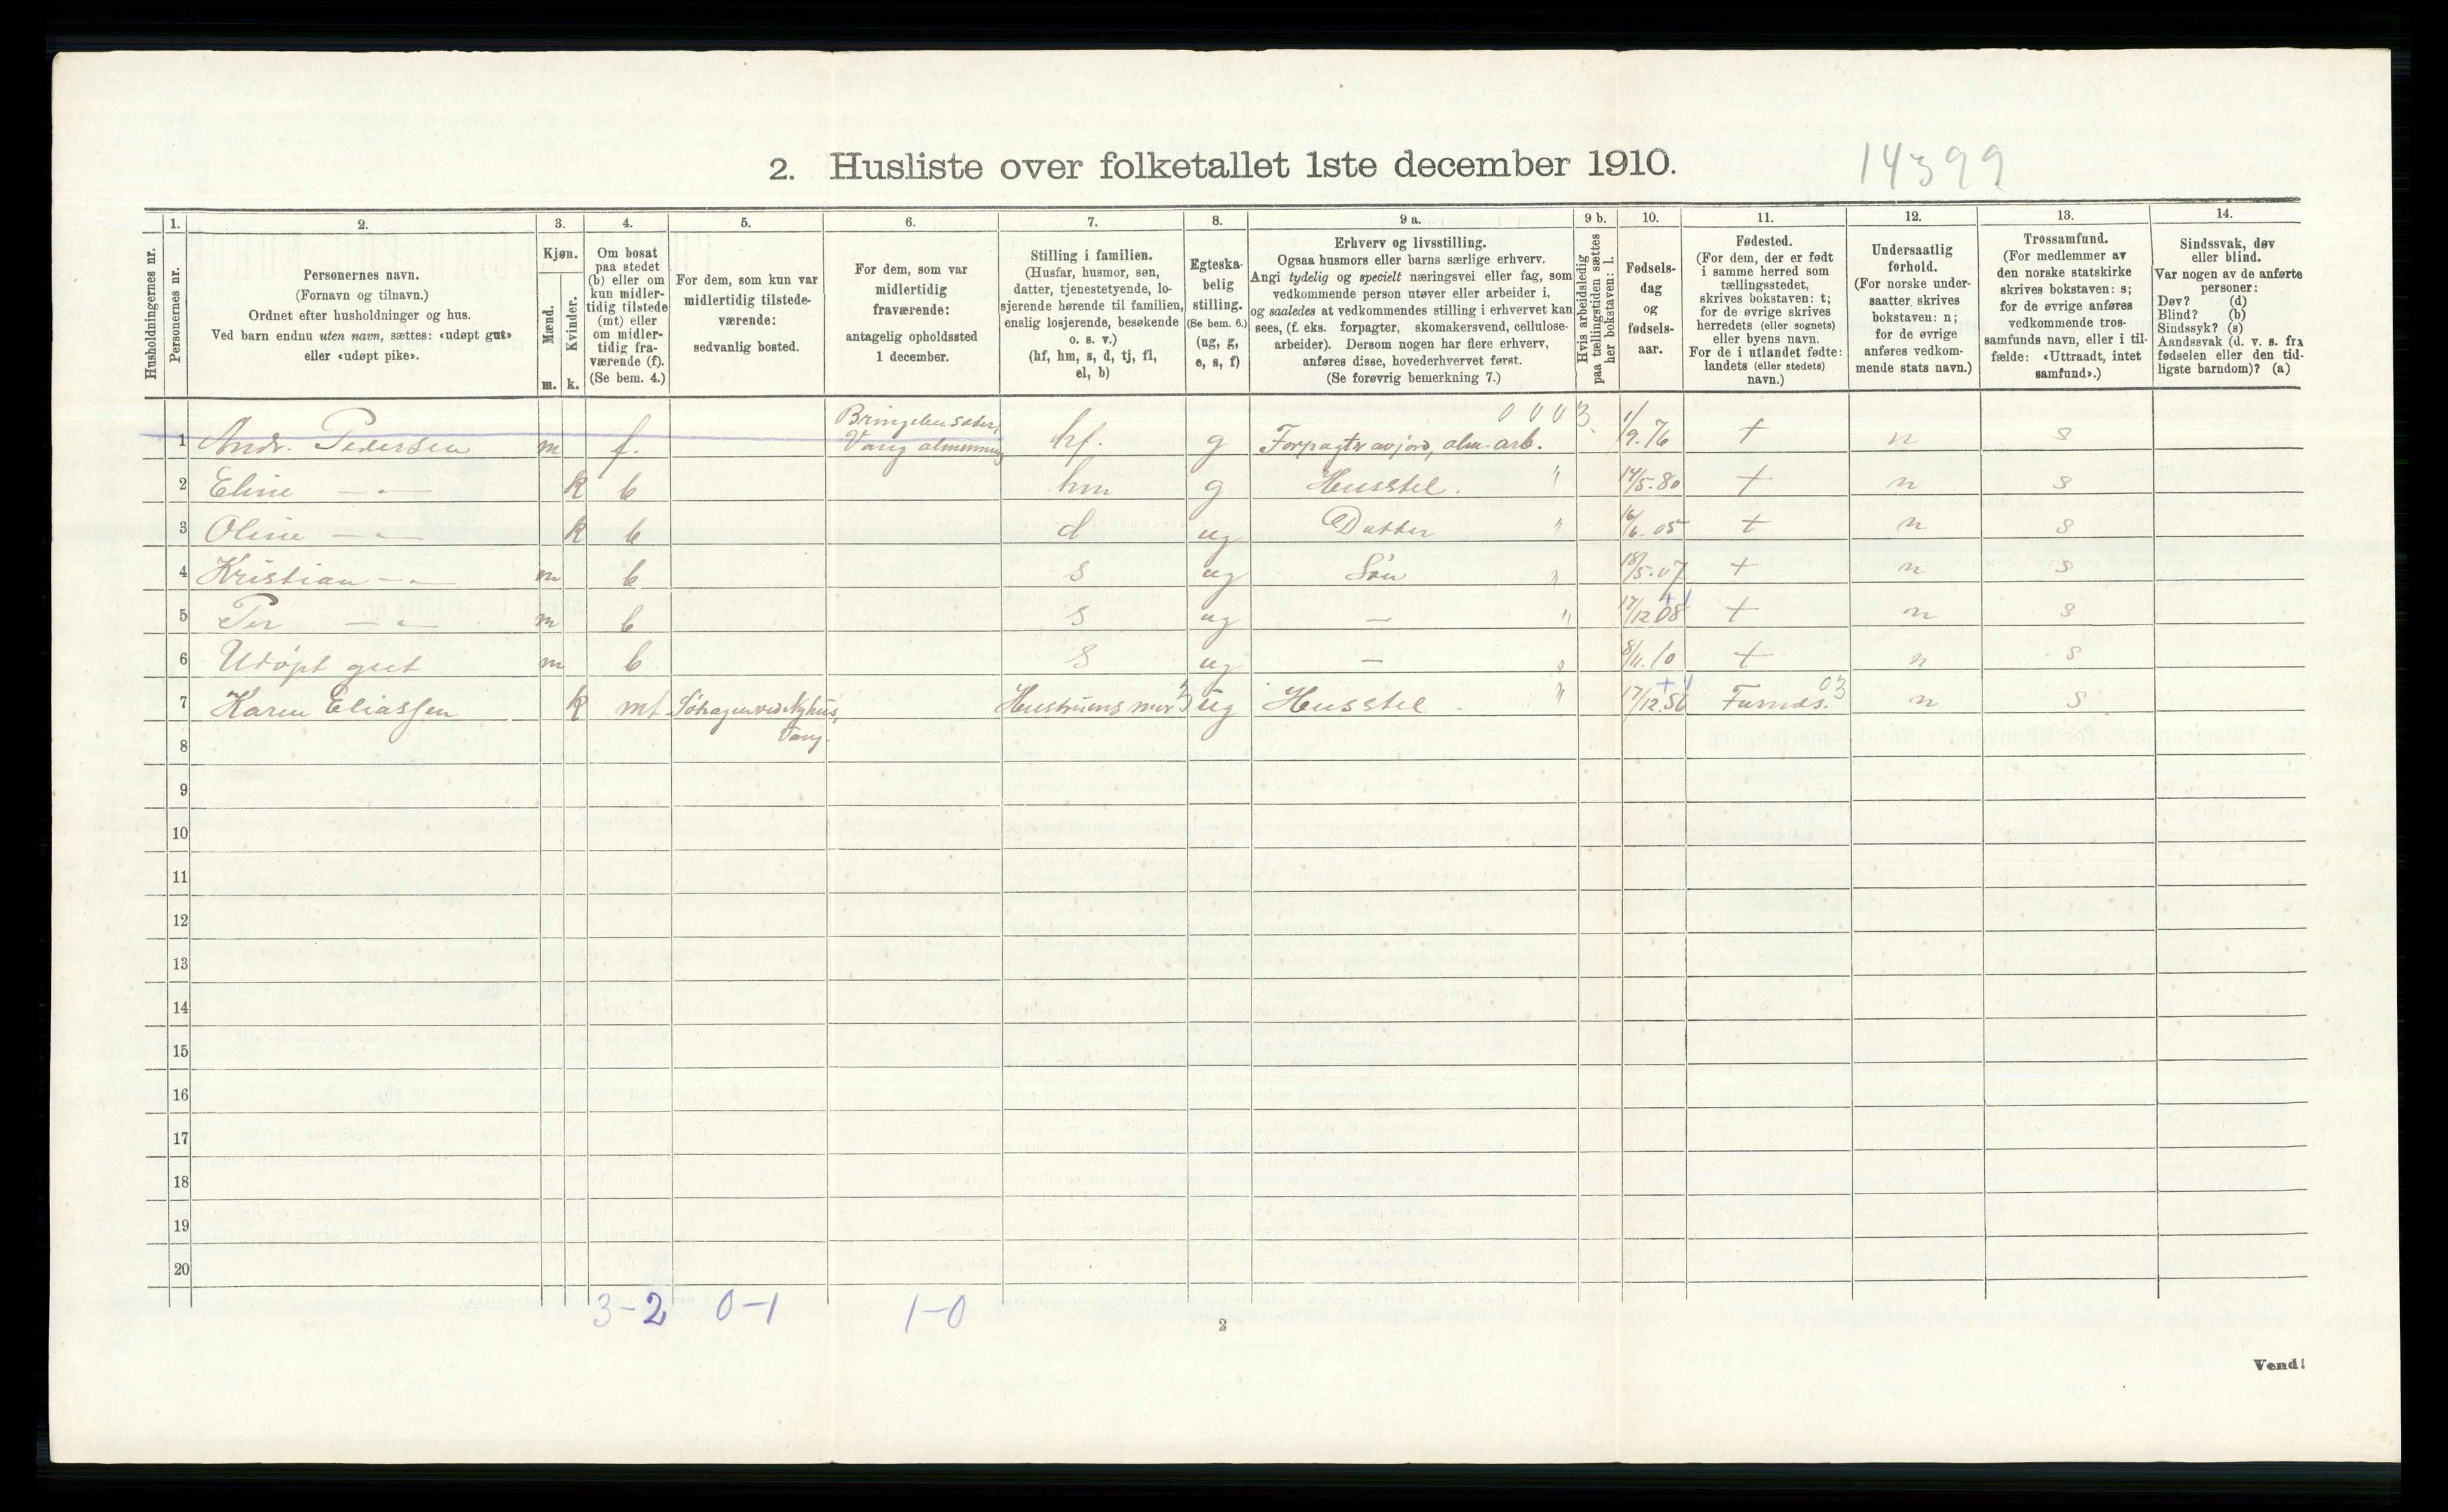 2. Husliste over folketallet 1ste december 1910.
14399
Husholdningernes nr.
1.
Personernes nr.
2.
Personernes navn.
(Fornavn og tilnavn.)
Ordnet efter husholdninger og hus.
Ved barn endnu uten navn, sættes: «udøpt gut»
eller «udøpt pike».
3.
Kjøn.
Mænd.
Kvinder.
m. k.
4.
Om bosat
paa stedet
(b) eller om
kun midler-
tidig tilstede
(mt) eller
om midler-
tidig fra-
værende (f).
(Se bem. 4.)
5.
For dem, som kun var
midlertidig tilstede-
værende:
sedvanlig bosted.
6.
For dem, som var
midlertidig
fraværende:
antagelig opholdssted
1 december.
7.
Stilling i familien.
(Husfar, husmor, søn,
datter, tjenestetyende, lo-
sjerende hørende til familien,
enslig losjerende, besøkende
o. s. v.)
(hf, hm, s, d, tj, fl,
el, b)
8.
Egteska-
belig
stilling.
(Se bem. 6.)
(ug, g,
e, s, f)
9 a.
Erhverv og livsstilling.
Ogsaa husmors eller barns særlige erhverv.
Angi tydelig og specielt næringsvei eller fag, som
vedkommende person utøver eller arbeider i,
og saaledes at vedkommendes stilling i erhvervet kan
sees, (f. eks. forpagter, skomakersvend, cellulose-
arbeider). Dersom nogen har flere erhverv,
anføres disse, hovederhvervet først.
(Se forøvrig bemerkning 7.)
9 b.
Hvis arbeidsledig
paa tællingstiden sættes
her bokstaven: l.
10.
Fødsels-
dag
og
fødsels-
aar.
11.
Fødested.
(For dem, der er født
i samme herred som
tællingsstedet,
skrives bokstaven: t;
for de øvrige skrives
herredets (eller sognets)
eller byens navn.
For de i utlandet fødte:
landets (eller stedets)
navn.)
12.
Undersaatlig
forhold.
(For norske under-
saatter skrives
bokstaven: n;
for de øvrige
anføres vedkom-
mende stats navn.)
13.
Trossamfund.
(For medlemmer av
den norske statskirke
skrives bokstaven: s;
for de øvrige anføres
vedkommende tros-
samfunds navn, eller i til-
fælde: «Uttraadt, intet
samfund».)
14.
Sindssvak, døv
eller blind.
Var nogen av de anførte
personer:
Døv? (d)
Blind? (b)
Sindssyk? (s)
Aandssvak (d. v. s. fra
fødselen eller den tid-
ligste barndom)? (a)
0003
1 Andr. Pedersen m f. Vang almenning hf. g Forpagter av jord, alm. arb. 1/9.76 t n s
2 Eline — " — k b hm g Husstel. " 14/5.80 t n s
3 Oline — " — k b d ug Datter " 16/6.05 t n s
4 Kristian — " — m b s ug Søn " 18/5.07 t n s
5 Per — " — m b s ug — " 17/12 08 t n s
6 Udøpt gut m b s ug — " 8/11.10 t n s
7 Karen Eliassen k mt Nyhus, Vang. Hustruens mor 3 ug Husstel " 17/12.56 Furnes. 03 n s
8
9
10
11
12
13
14
15
16
17
18
19
20
3-2 0-1 1-0
2
Vend!